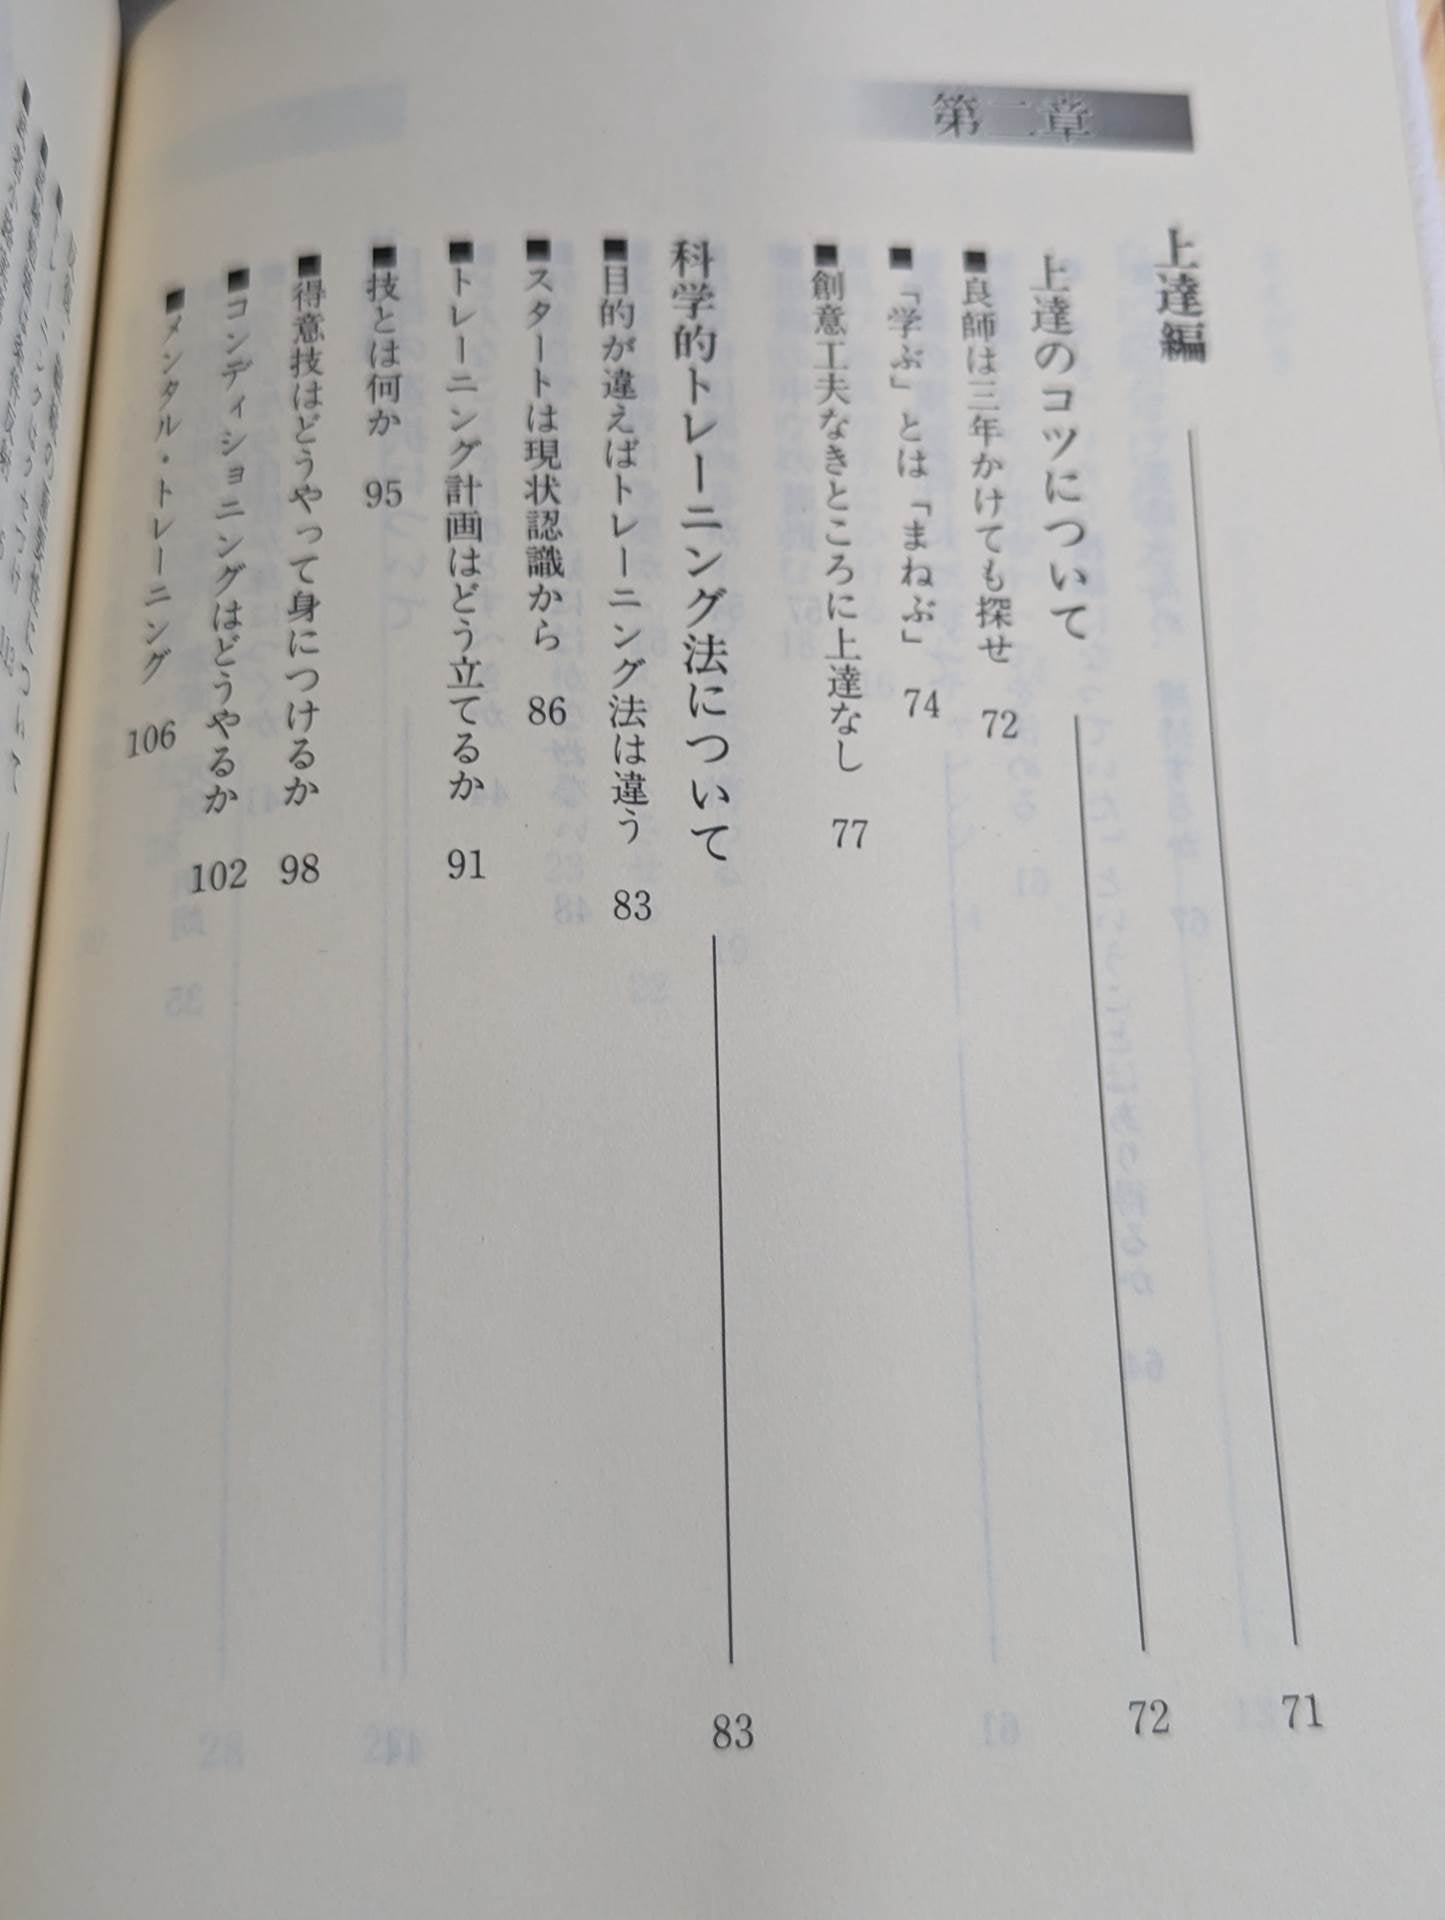 第二章
上達編 71
上達のコツについて 72
■良師は三年かけても探せ 72
■「学ぶ」とは「まねぶ」 74
■創意工夫なきところに上達なし 77
科学的トレーニング法について 83
■目的が違えばトレーニング法は違う 83
■スタートは現状認識から 86
■トレーニング計画はどう立てるか 91
■技とは何か 95
■得意技はどうやって身につけるか 98
■コンディショニングはどうやるか 102
■メンタル・トレーニング 106